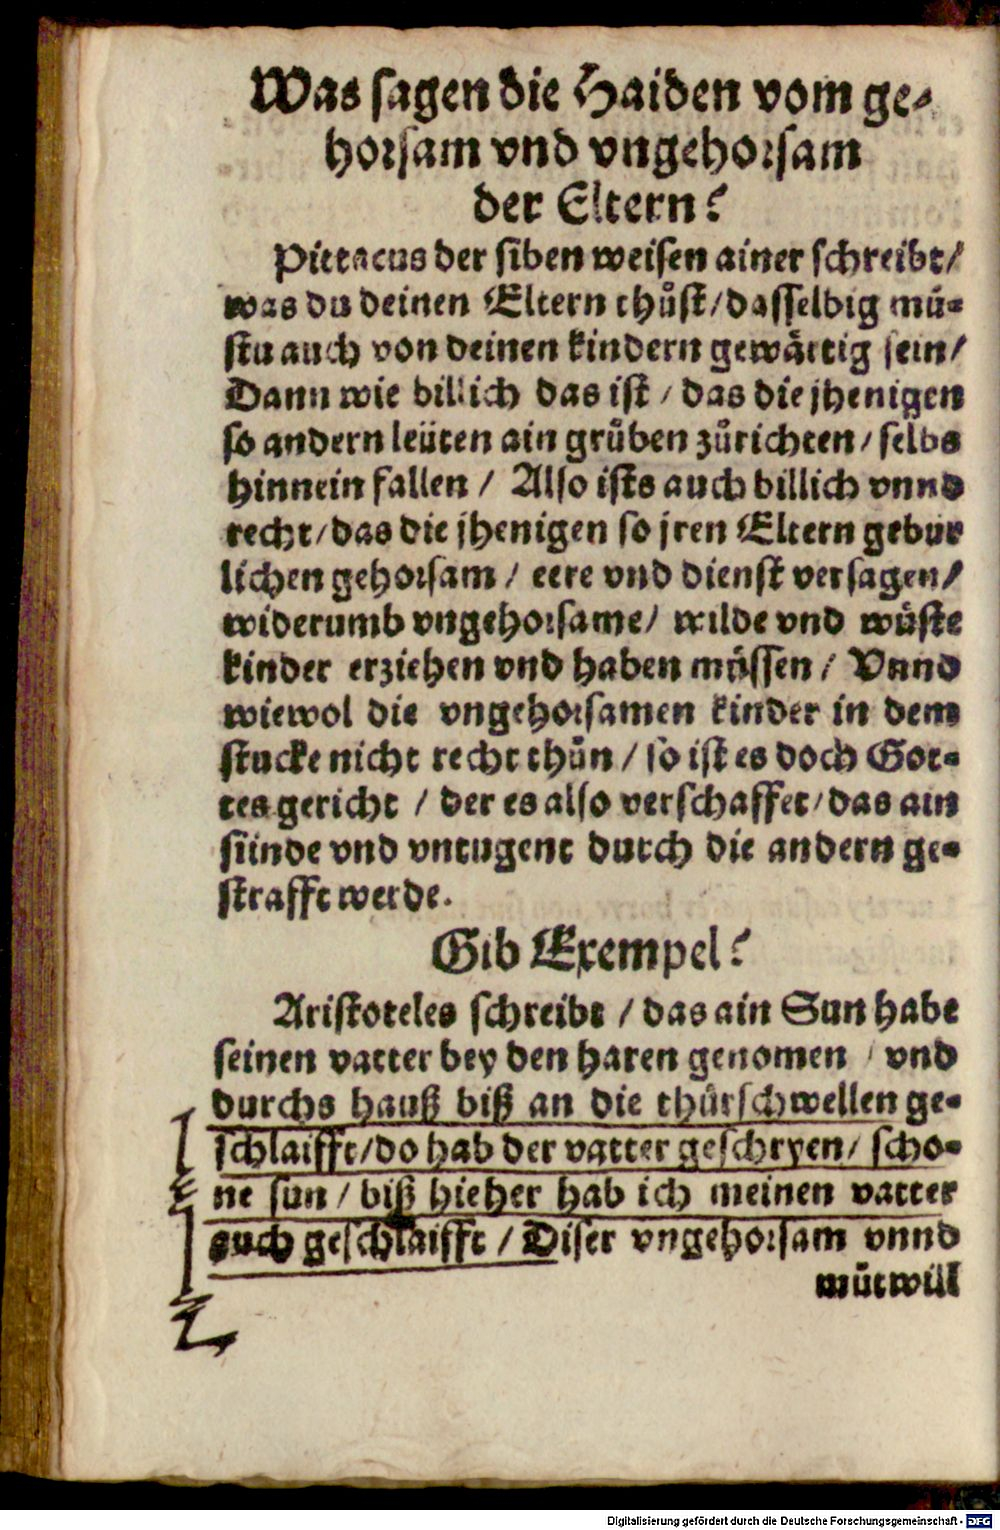 Was sagen die Haiden vom ge-
horsam vnd vngehorsam
der Eltern?
Pittacus der siben weisen ainer schreibt/
was du deinen Eltern thůst/dasselbig mů-
stu auch von deinen kindern gewärtig sein/
Dann wie billich das ist / das die jhenigen
so andern leüten ain grůben zůrichten/ selbs
hinnein fallen / Also ists auch billich vnnd
recht/das die jhenigen so jren Eltern gebür
lichen gehorsam / eere vnd dienst versagen/
widerumb vngehorsame/ wilde vnd wůste
kinder erziehen vnd haben můssen / Vnnd
wiewol die vngehorsamen kinder in dem
stucke nicht recht thůn / so ist es doch Got-
tes gericht / der es also verschaffet/das ain
sünde vnd vntugent durch die andern ge-
strafft werde.
Gib Exempel?
Aristoteles schreibt / das ain Sun habe
seinen vatter bey den haren genomen / vnd
durchs hauß biß an die thůrschwellen ge-
schlaifft/do hab der vatter geschryen/ scho-
ne sun / biß hieher hab ich meinen vatter
auch geschlaifft / Diser vngehorsam vnnd
můtwill
Digitalisierung gefördert durch die Deutsche Forschungsgemeinschaft - DFG